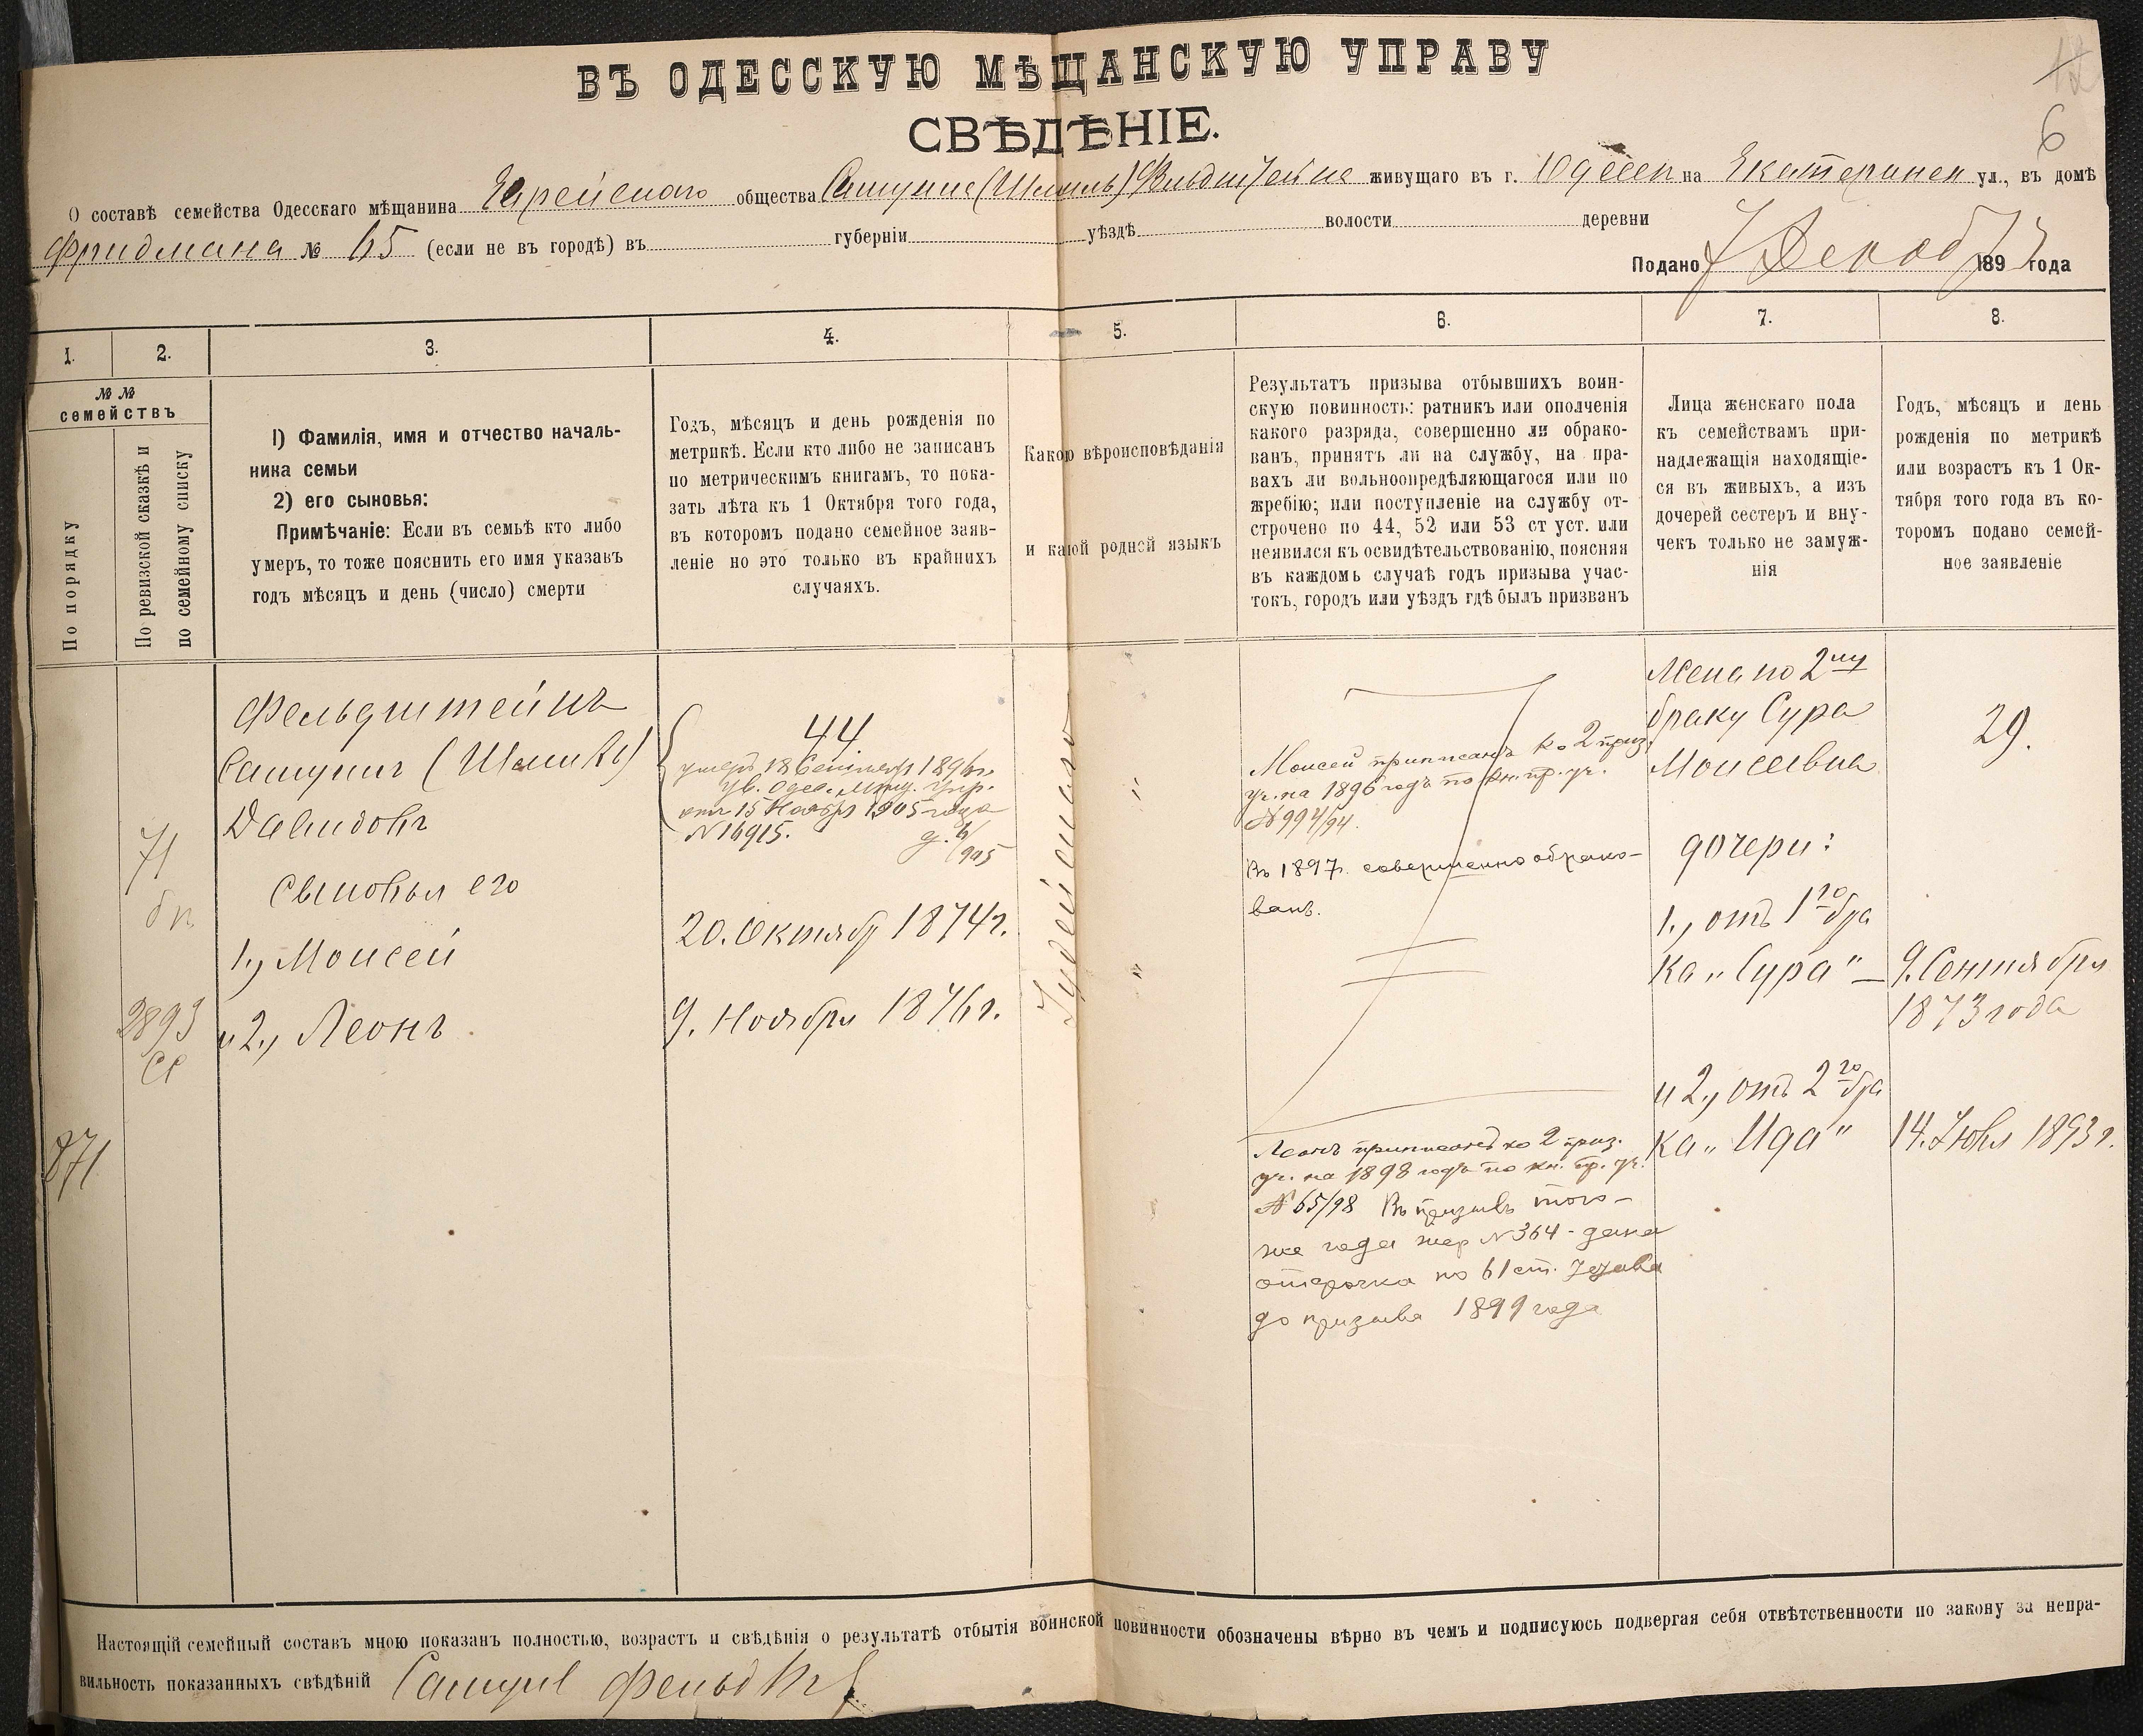 12
6
ВЪ ОДЕССКУЮ МѢЩАНСКУЮ УПРАВУ
СВѢДѢНІЕ.
О составѣ семейства Одесскаго мѣщанина Еврейскаго общества живущаго въ г. Одессѣ на Екатеринен ул., въ домѣ
Фридмана № 65 (если не въ городѣ) въ губерніи уѣздѣ волости деревни
Подано 7 Декаб 1893 года
1.
2.
3.
4.
5.
6.
7.
8.
№ №
семействъ
По порядку
По ревизской сказкѣ и
по семейному списку
1) Фамилія, имя и отчество началь-
ника семьи
2) его сыновья:
Примѣчаніе: Если въ семьѣ кто либо
умеръ, то тоже пояснить его имя указавъ
годъ мѣсяцъ и день (число) смерти
Годъ, мѣсяцъ и день рожденія по
метрикѣ. Если кто либо не записанъ
по метрическимъ книгамъ, то пока-
зать лѣта къ 1 Октября того года,
въ которомъ подано семейное заяв-
леніе но это только въ крайнихъ
случаяхъ.
Какою вѣроисповѣданія
и какой родней языкъ
Результатъ призыва отбывшихъ воин-
скую повинность: ратникъ или ополченія
какого разряда, совершенно ли обрако-
ванъ, принятъ ли на службу, на пра-
вахъ ли вольноопредѣляющагося или по
жребію; или поступленіе на службу от-
строчено по 44, 52 или 53 ст уст. или
неявился къ освидѣтельствованію, поясняя
въ каждомъ случаѣ годъ призыва учас-
токъ, городъ или уѣздъ гдѣ былъ призванъ
Лица женскаго пола
къ семействамъ при-
надлежащія находящіе-
ся въ живыхъ, а изъ
дочерей сестеръ и вну-
чекъ только не замуж-
нія
Годъ, мѣсяцъ и день
рожденія по метрикѣ
или возрастъ къ 1 Ок-
тября того года въ ко-
торомъ подано семей-
ное заявленіе
871
71
бп
2893
св
Фельдштейнъ
Самуилъ (Шмиль)
Давидовъ
Сыновья его
1., Моисей
и 2., Леонъ
44
умеръ 18 Сентября 1896 г.
Ув. Одес. Мѣщ. Упр.
отъ 15 Ноября 1905 года
N 16915.
20. Октябр 1874 г.
9. Ноября 1876 г.
Іудейскаго
"
"
Моисей приписанъ ко 2 приз.
уч. на 1896 годъ по кн. пр. уч.
№ 994/94.
Въ 1897 г. совершенно обрако-
ванъ.
Леонъ приписанъ ко 2 приз.
уч. на 1898 годъ по кн. пр. уч.
№ 65/98 Въ призывъ того-
же года жер N 364 - дана
отсрочка по 61 ст. Устава
до призыва 1899 года
Жена по 2му
браку Сура
Моисеевна
дочери:
1., отъ 1го бра
ка „Сура" —
и 2., отъ 2го бра
ка „Ида"
29.
9. Сентября
1873 года
14. Іюля 1893 г.
Настоящій семейный составъ мною показанъ полностью, возрастъ и свѣдѣнія о результатѣ отбытія воинской повинности обозначены вѣрно въ чемъ и подписуюсь подвергая себя отвѣтственности по закону за непра-
вильность показанныхъ свѣдѣній Самуил